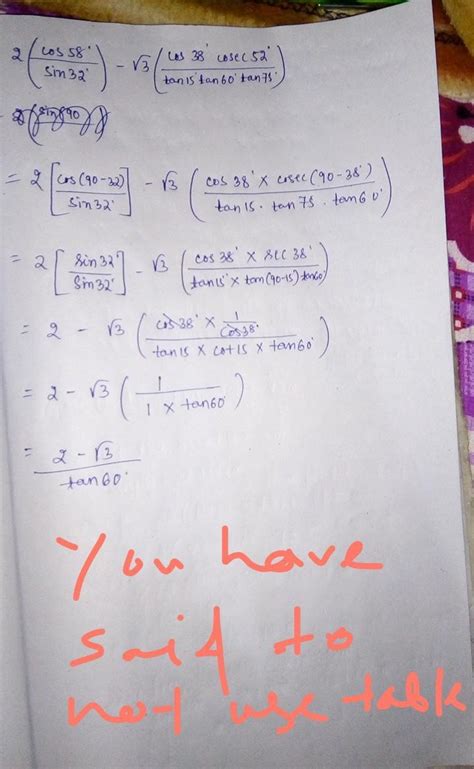 2 ( cos 58° / sin 32° ) - √3 ( cos 38° cosec 52° / tan 15 tan 60° tan 75° )
= 2 [ cos (90-32) / sin 32° ] - √3 ( cos 38° × cosec (90-38°) / tan 15 . tan 75 . tan 60° )
= 2 [ sin 32° / sin 32° ] - √3 ( cos 38° × sec 38° / tan 15° × tan (90-15) tan 60° )
= 2 - √3 ( cos 38° × 1/cos 38° / tan 15 × cot 15 × tan 60° )
= 2 - √3 ( 1 / 1 × tan 60° )
= 2 - √3 / tan 60°
You have
said to
not use table